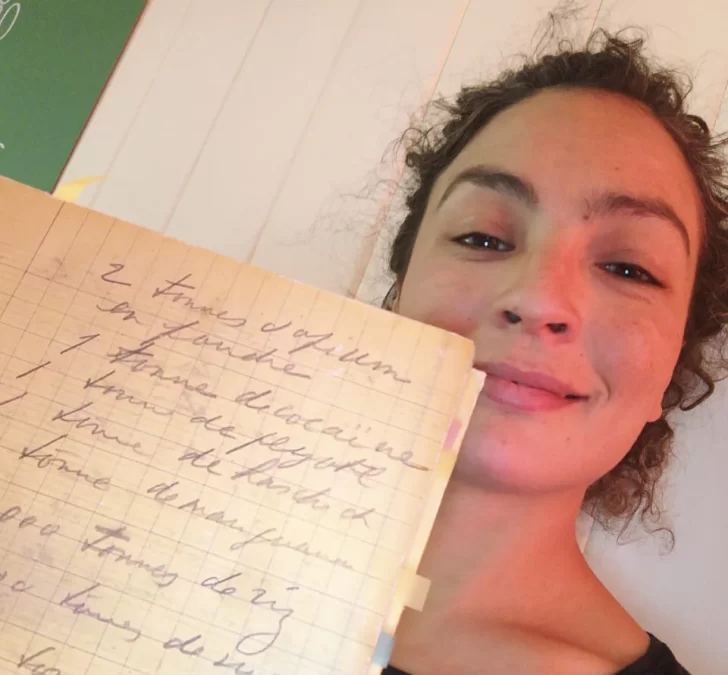 2 tonnes d'opium
en poudre
1 tonne de cocaïne
1 tonne de peyotl
1 tonne de haschich
tonne de
000 tonnes de riz
tonnes de